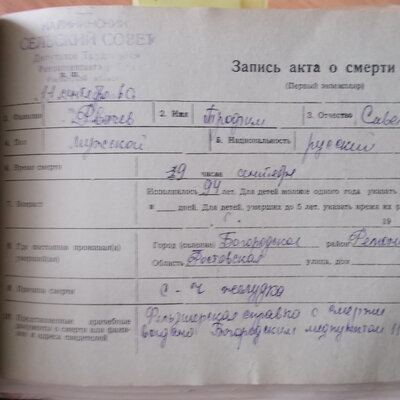 КАЛИНИНСКИЙ
СЕЛЬСКИЙ СОВЕТ
Депутатов Трудящихся
Запись акта о смерти
(Первый экземпляр)
11 сентября
1. Фамилия 2. Имя Трофим 3. Отчество Саве
4. Пол Мужской 5. Национальность русский
6. Время смерти 9 числа сентября
7. Возраст Исполнилось 94 лет. Для детей моложе одного года указать
в дней. Для детей, умерших до 5 лет, указать время их р
19
8. Где постоянно проживал(а) умерший(ая) Город (селение) Богородское район Ремон
Область Ростовская улица, дом
9. Причина смерти С-ч желудка
10. Представленные врачебные документы о смерти или фамилии и адреса свидетелей Фельдшерская справка о смерти
выдана Богородским медпунктом